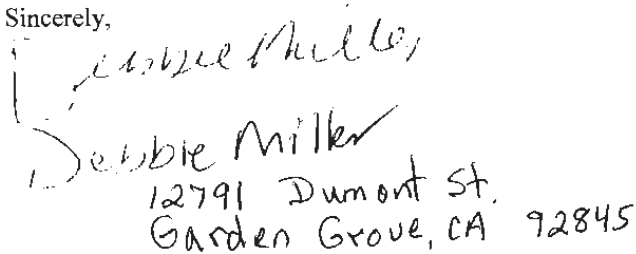 Sincerely,
Debbie Miller
Debbie Miller
12791 Dumont St.
Garden Grove, CA 92845